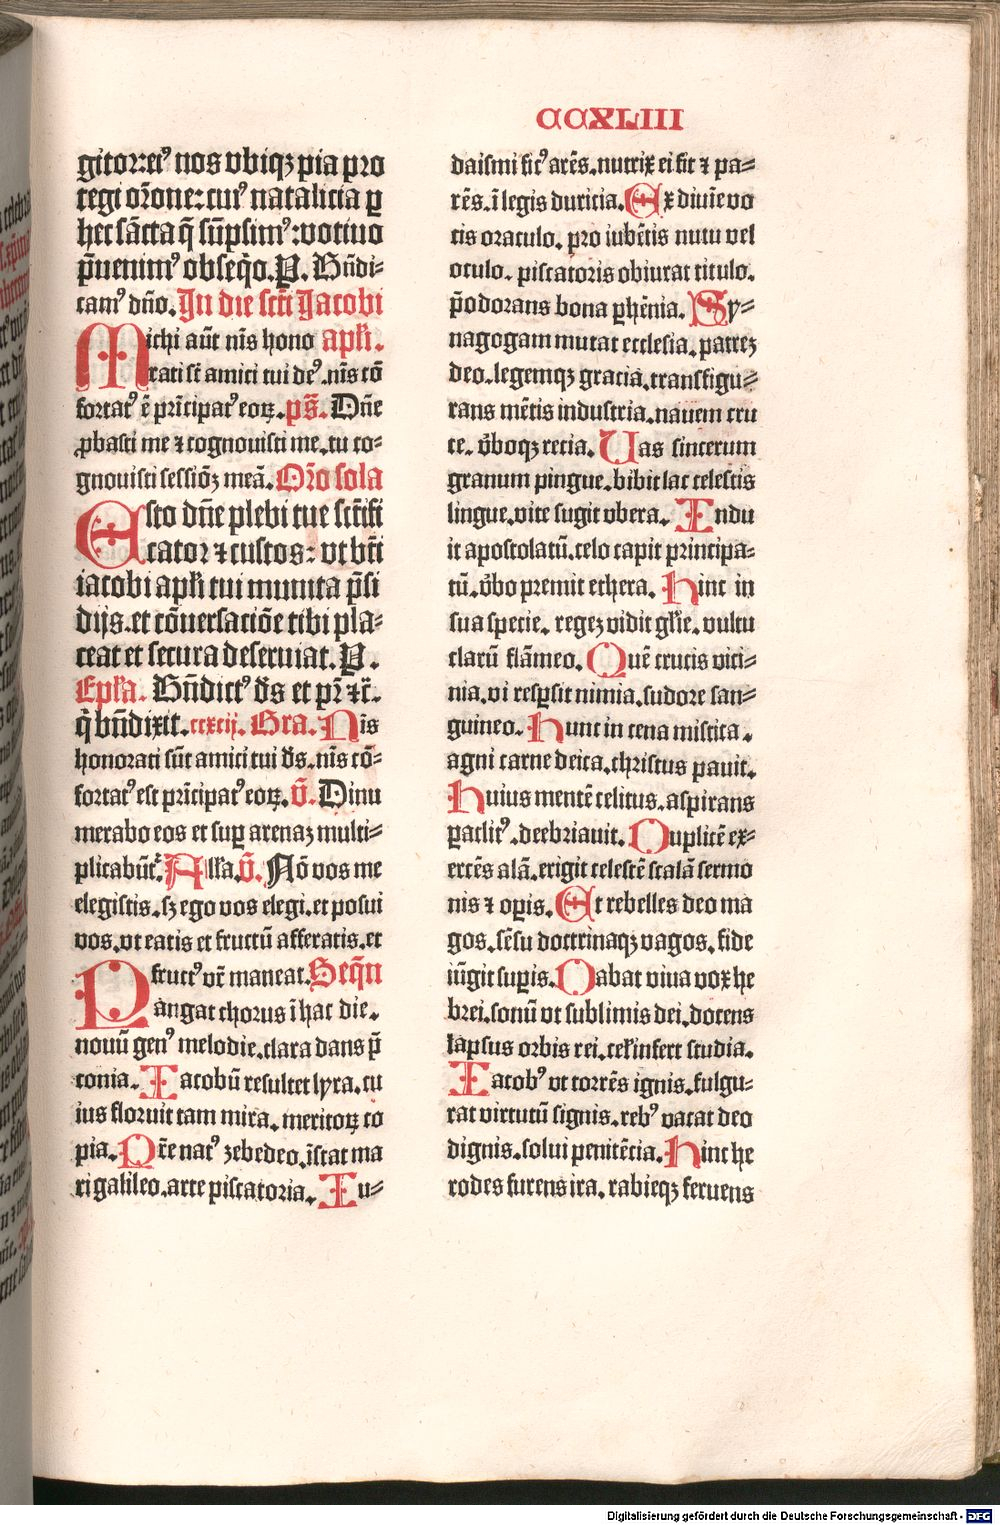 CCXLIII
gitor: eiꝰ nos vbiqꝫ pia pro
tegi or̄one: cuiꝰ natalicia ꝑ
hec sācta q̄ sūpsimꝰ: votiuo
p̄uenimꝰ obseq̄o. P. Bn̄di-
camꝰ dn̄o. In die scti Jacobi
Michi aūt nīs hono apl̄i.
rati sūt amici tui deꝰ. nīs cō
fortatꝰ ē prīcipatꝰ eoꝝ. ps̄. Dn̄e
ꝓbasti me ⁊ cognouisti me. tu co-
gnouisti sessiōꝫ meā. Or̄o sola
Esto dn̄e plebi tue sctifi
cator ⁊ custos: vt bt̄i
iacobi apl̄i tui munita p̄si
dijs. et cōuersatiōe tibi pla-
ceat et secura deseruiat. P.
Epl̄a. Bn̄dictꝰ ds̄ et pr̄ ⁊c̄.
q̄ bn̄dixit. ccxcij. Gra. Nis
honorati sūt amici tui ds̄. nīs cō-
fortatꝰ est prīcipatꝰ eoꝝ. v̄. Dinu
merabo eos et suꝑ arenaꝫ multi-
plicabūt᷑. All̄a. v̄. Nō vos me
elegistis. sꝫ ego vos elegi. et posui
vos. vt eatis et fructū afferatis. et
fructꝰ vr̄ maneat. Seq̄n
Pangat chorus ī hac die.
nouū genꝰ melodie. clara dans p̄
conia. Iacobū resultet lyra. cu
ius floruit tam mira. meritoꝝ co
pia. Pr̄e natꝰ zebedeo. īstat ma
ri galileo. arte piscatoria. Iu-
daismi sitꝰ arēs. nutrix ei fit ⁊ pa-
rēs. ī legis duricia. Ex diuīe vo
cis oraculo. pro iubētis nutu vel
oculo. piscatoris obiurat titulo.
p̄odorans bona ꝑhēnia. Sy-
nagogam mutat ecclesia. patreꝫ
deo. legemqꝫ gracia. transfigu-
rans mētis industria. nauem cru
ce. v̄boqꝫ recia. Uas sincerum
granum pingue. bibit lac celestis
lingue. vite sugit vbera. Indu
it apostolatū. celo capit principa-
tū. v̄bo premit ethera. Hinc in
sua specie. regeꝫ vidit gl̄ie. vultu
clarū flāmeo. Quē crucis vici-
nia. vi resꝑsit nimia. sudore san-
guineo. Hunc in cena mistica.
agni carne deica. christus pauit.
Huius mentē celitus. aspirans
paclitꝰ. deebriauit. Duplicē ex-
ercēs alā. erigit celestē scalā sermo
nis ⁊ oꝑis. Et rebelles deo ma
gos. sēsu doctrinaqꝫ vagos. fide
iūgit suꝑis. Dabat viua vox he
brei. sonū vt sublimis dei. docens
lapsus orbis rei. cel̄ infert studia.
Iacobꝰ vt torrēs ignis. fulgu-
rat virtutū signis. rebꝰ vacat deo
dignis. solui penitētia. Hinc he
rodes furens ira. rabieqꝫ feruens
Digitalisierung gefördert durch die Deutsche Forschungsgemeinschaft - DFG